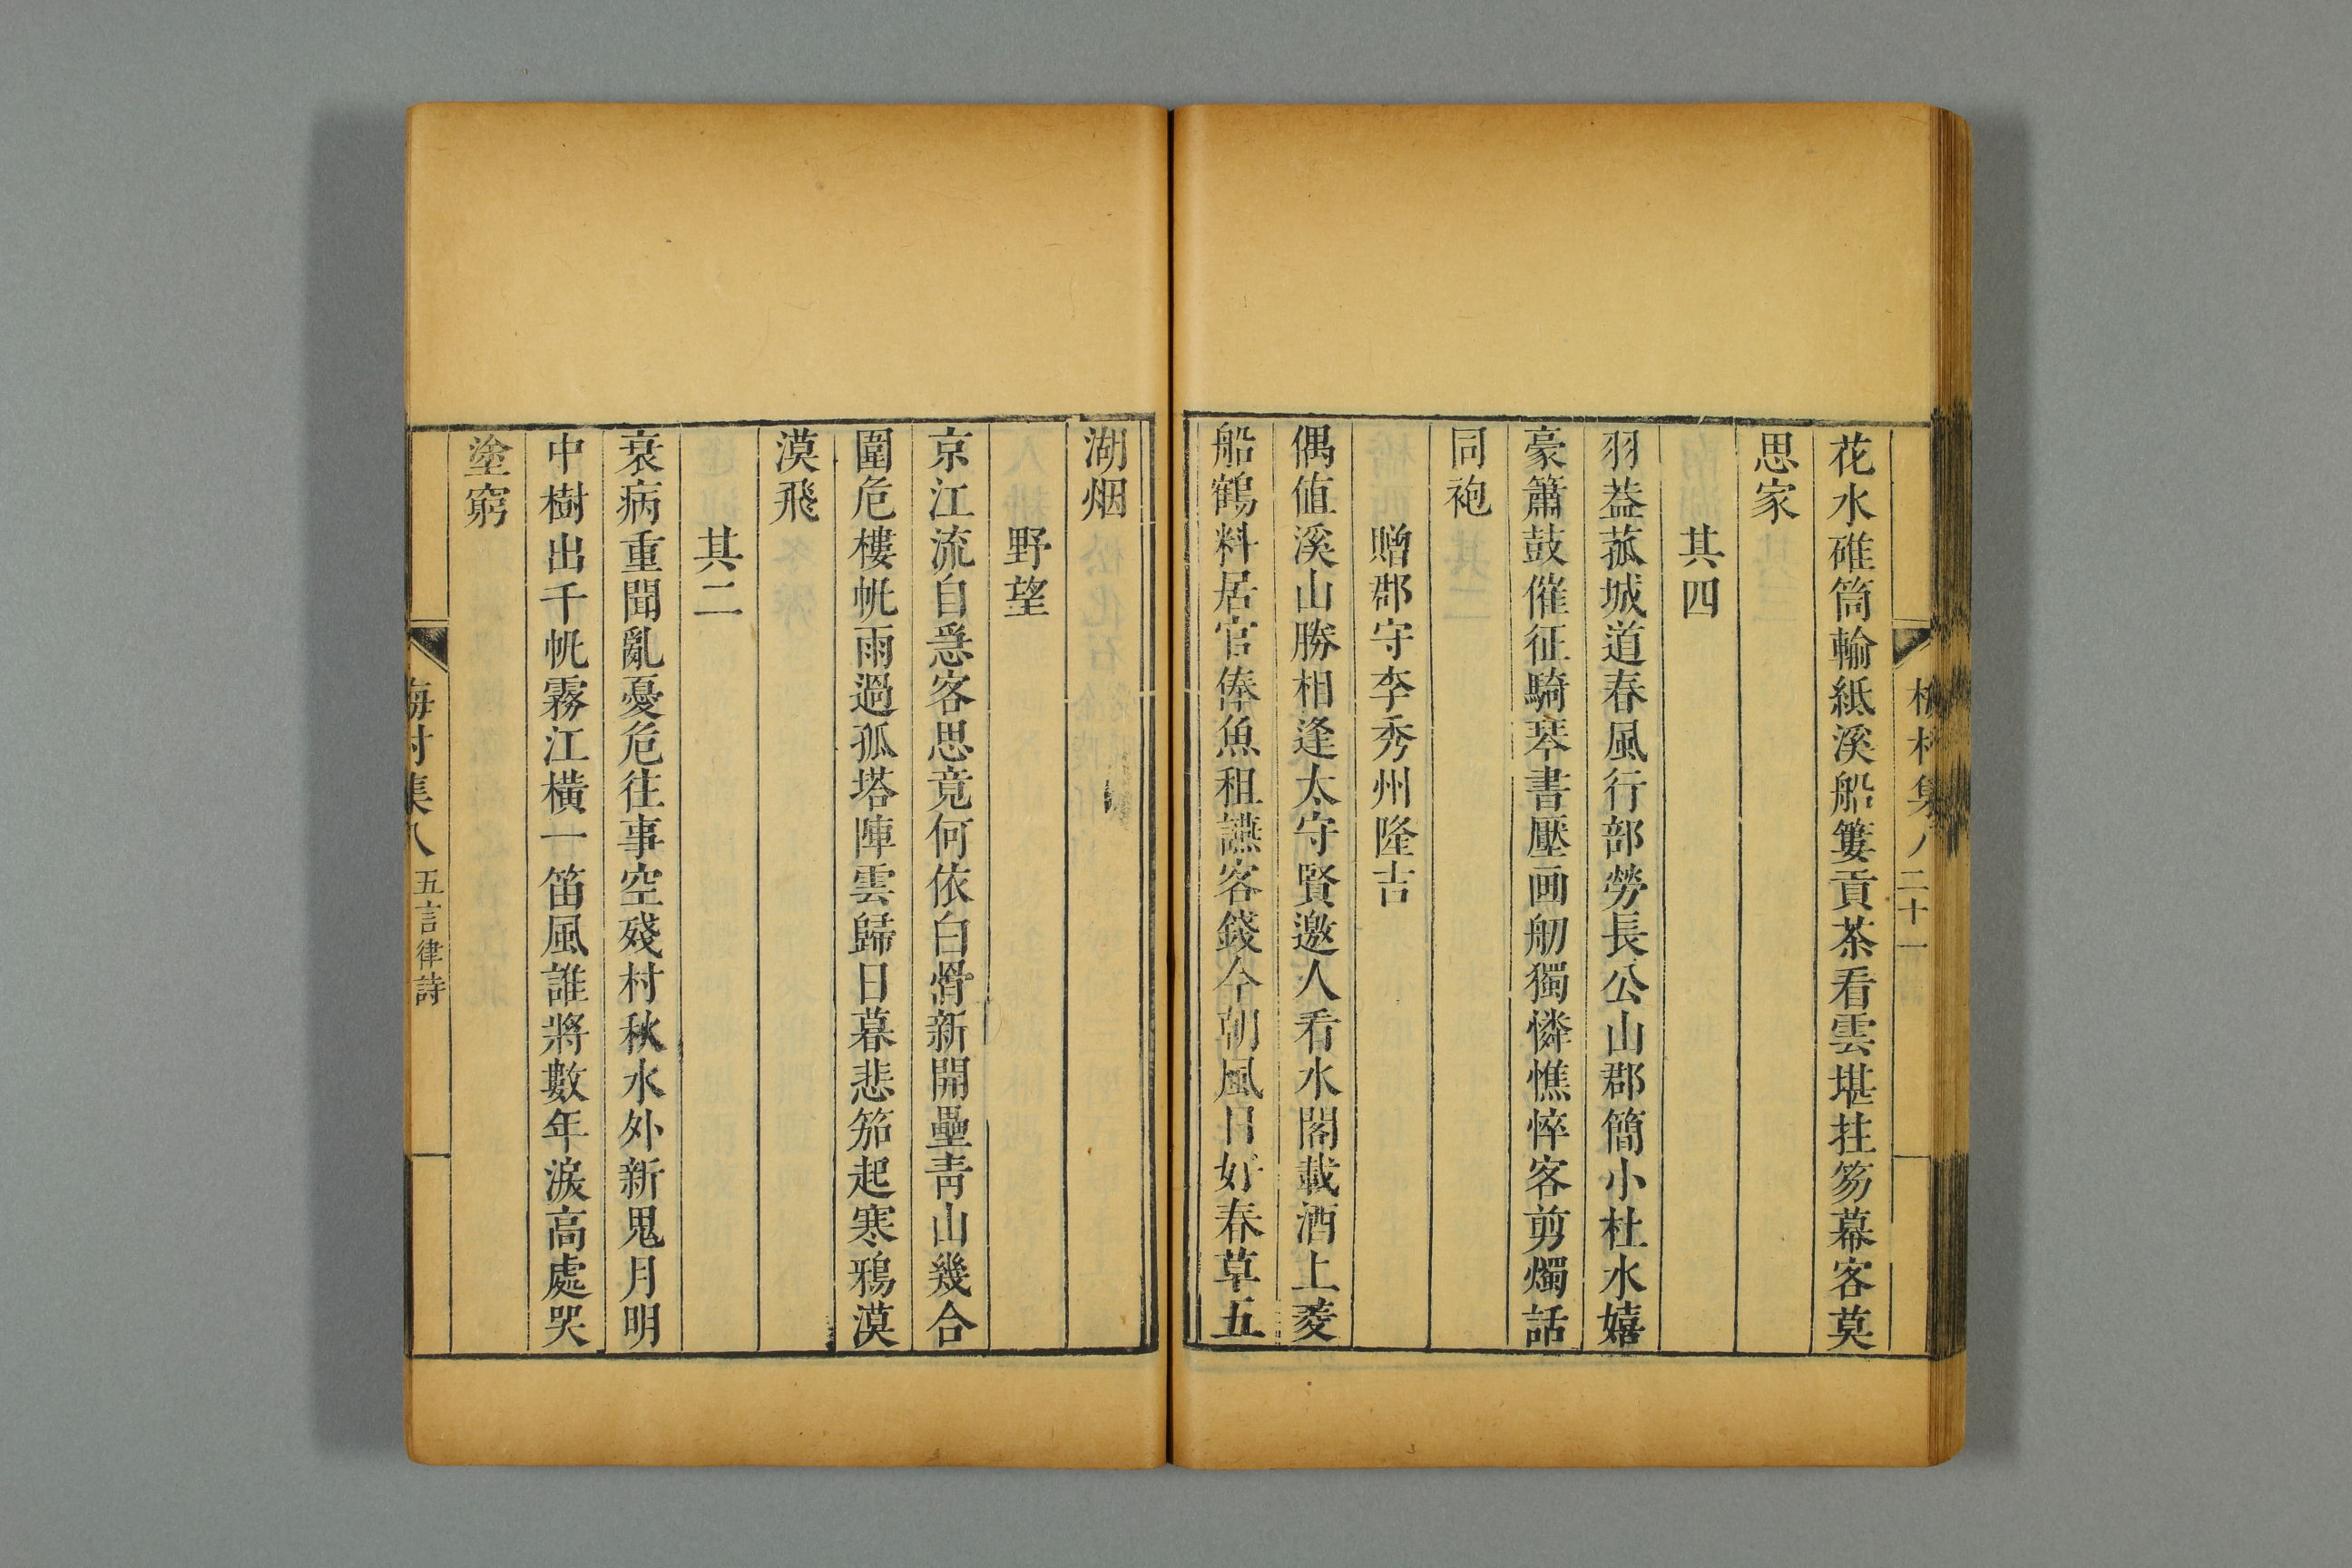 花水碓筒輸紙溪船簍貢茶看雲堪拄笏幕客莫
思家
其四
羽葢菰城道春風行部勞長公山郡簡小杜水嬉
豪簫鼓催征騎琴書壓画舠獨憐憔悴客剪燭話
同袍
贈郡守李秀州隆吉
偶值溪山勝相逢太守賢邀人看水閣載酒上菱
船鶴料居官俸魚租讌客錢今朝風日好春草五
湖烟
野望
京江流自急客思竟何依白骨新開壘青山幾合
圍危樓帆雨過孤塔陣雲歸日暮悲笳起寒鴉漠
漠飛
其二
衰病重聞亂憂危往事空殘村秋水外新鬼月明
中樹出千帆霧江橫一笛風誰將數年淚高處哭
塗窮
梅村集八 五言律詩
二十一